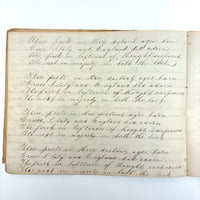 Three poets in three distant ages born
Greece Italy and England did adorn
The first in loftiness of thought surpassed
The next in majesty in both the last

Three poets in three distant ages born
Greece Italy and England did adorn
The first in loftiness of thought surpassed
The next in majesty in both the last

Three poets in three distant ages born
Greece Italy and England did adorn
The first in loftiness of thought surpassed
The next in majesty in both the last

Three poets in three distant ages born
Greece Italy and England did adorn
The first in loftiness of thought surpassed
The next in majesty in both the last